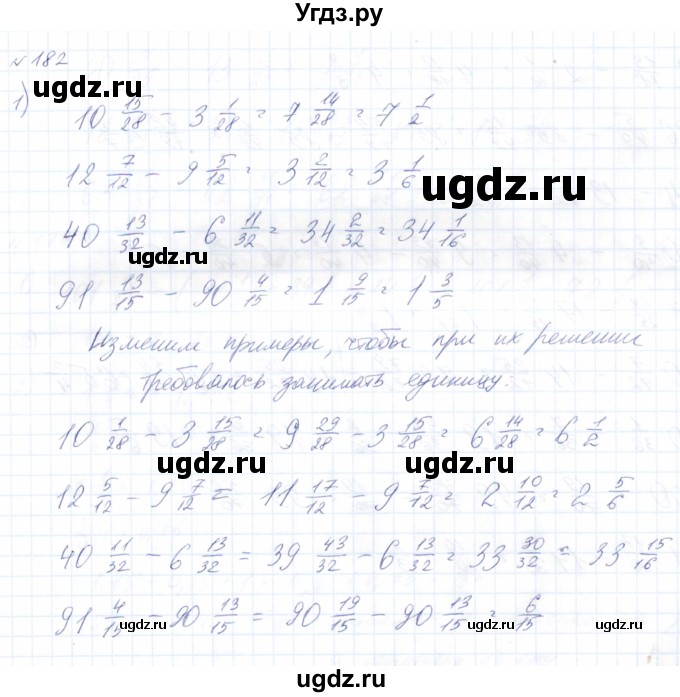 Угдз.ру
№182
ugdz.ru ugdz.ru
1) 10 15/28 - 3 1/28 = 7 14/28 = 7 1/2
12 7/12 - 9 5/12 = 3 2/12 = 3 1/6
ugdz.ru
40 13/32 - 6 11/32 = 34 2/32 = 34 1/16
ugdz.ru
91 13/15 - 90 4/15 = 1 9/15 = 1 3/5
Изменим примеры, чтобы при их решении
требовалось занимать единицу.
10 1/28 - 3 15/28 = 9 29/28 - 3 15/28 = 6 14/28 = 6 1/2
ugdz.ru ugdz.ru
12 5/12 - 9 7/12 = 11 17/12 - 9 7/12 = 2 10/12 = 2 5/6
40 11/32 - 6 13/32 = 39 43/32 - 6 13/32 = 33 30/32 = 33 15/16
91 4/15 - 90 13/15 = 90 19/15 - 90 13/15 = 6/15
ugdz.ru ugdz.ru
ugdz.ru